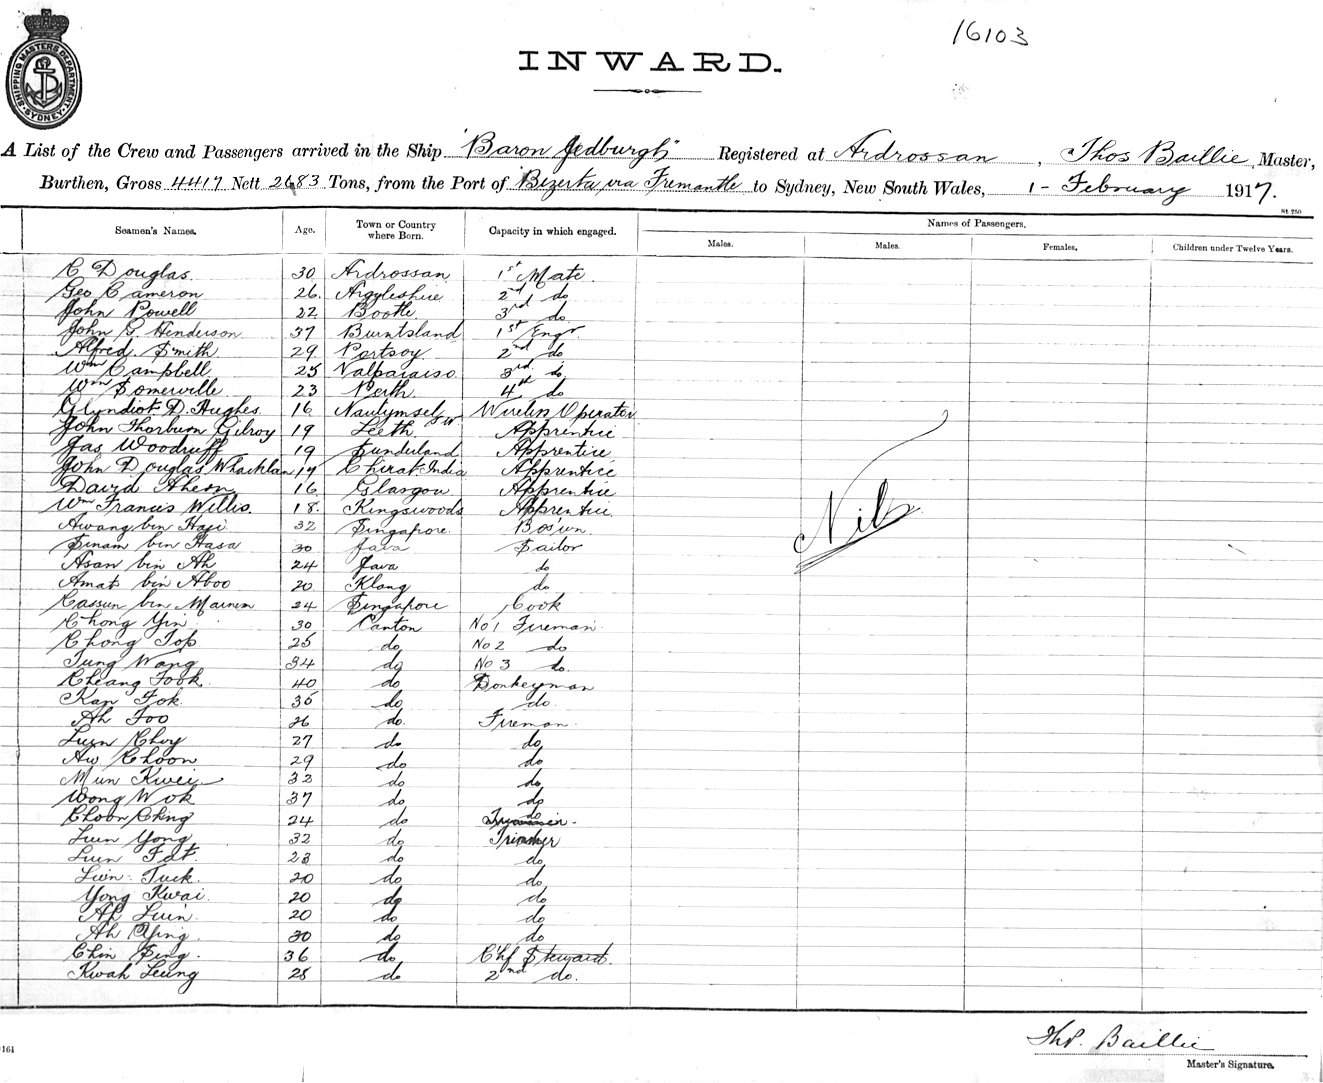 16103
SHIPPING MASTERS DEPARTMENT SYDNEY
INWARD.
A List of the Crew and Passengers arrived in the Ship "Baron Jedburgh" Registered at Ardrossan, Thos Baillie Master,
Burthen, Gross 4417 Nett 2683 Tons, from the Port of Bizerta via Fremantle to Sydney, New South Wales, 1 - February 1917.
St 250
Seamen's Names. Age. Town or Country where Born. Capacity in which engaged. Names of Passengers.
Males. Males. Females. Children under Twelve Years.
C Douglas. 30 Ardrossan 1st Mate.
Geo Cameron 26. Argyleshire 2nd do
John Powell 22 Bootle 3rd do.
John G. Henderson 37 Burntsland 1st Engr.
Alfred. Smith 29 Portsoy. 2nd do
Wm Campbell 25 Valparaiso. 3rd. do
Wm Somerville 23 Perth. 4th do
D. Hughes. 16 SW Wireless Operator
John Thorburn Gilroy 19 Leeth. Apprentice
Jas Woodruff 19 Sunderland Apprentice
John Douglas 17 India Apprentice
David Ahern 16 Glasgow Apprentice
Wm Francis Willis. 18. Kingswoods Apprentice
Awang bin Haji 32 Singapore. Bos'un.
Sinam bin Hasa 30 Java Sailor
Asan bin Ah 24 Java do
Amat bin Aboo 20 Klang do
Cassun bin 24 Singapore Cook
Chong Yin 30 Canton No 1 Fireman
Chong Top 25 do No 2 do
Tung Wang 34 do No 3 do.
Cheang Fook. 40 do Donkeyman
Kan Fok 35 do do.
Ah Foo 26 do. Fireman.
Luen Choy 27 do do
Aw Choon 29 do do
Mun Kwei 32 do do
Wong Wok 37 do do
Choon Ching 24 do do
Luen Yong 32 do Trimmer
Luen Fat. 23 do do
Luin Tuck 20 do do
Yong Kwai 20 do do
Ah Luin 20 do do
Ah Ying. 30 do do
Chin Sing. 36 do Chf Steward.
Kwah Leung 25 do 2nd do.
Nil
Thos. Baillie
Master's Signature.
161